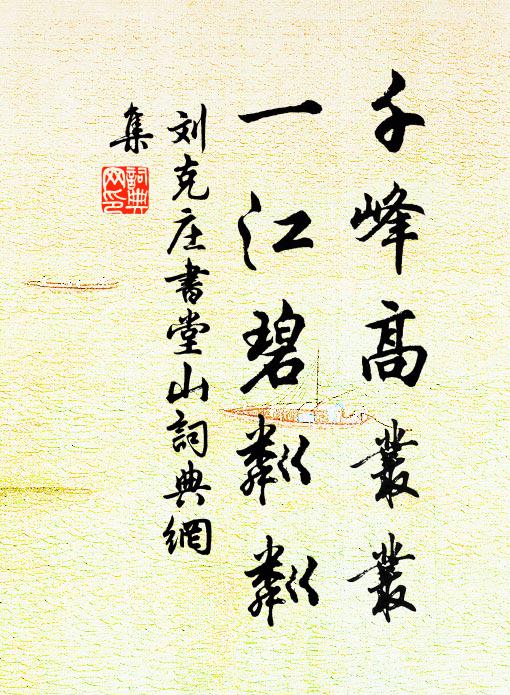 千峰高叢叢
一江碧粼粼
刘克庄書堂山詞典網
集
詞典網印